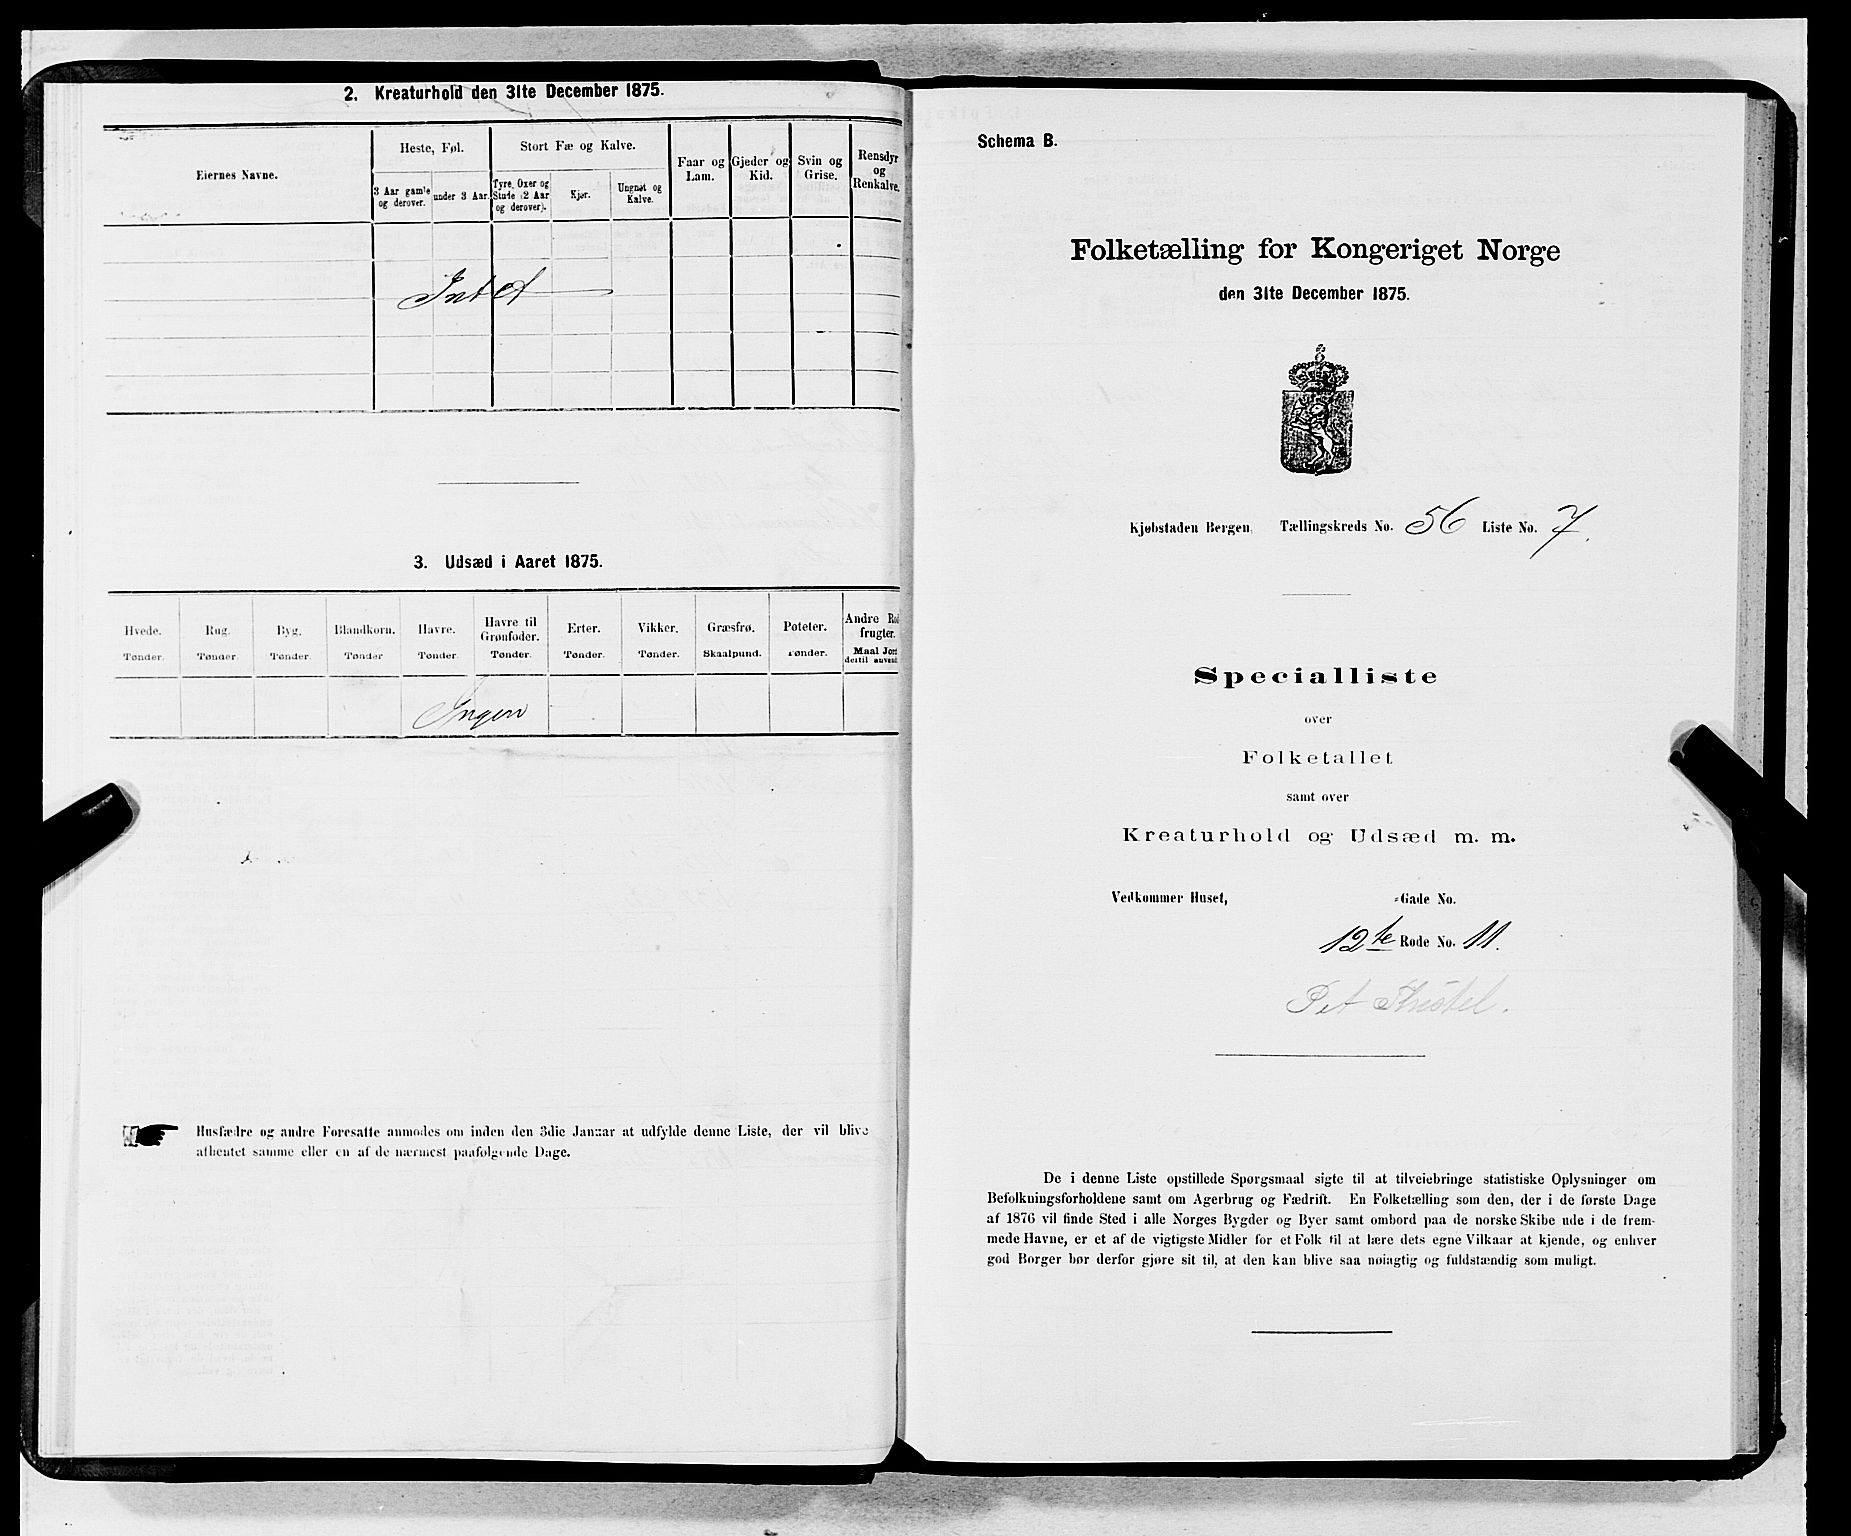 2. Kreaturhold den 31te December 1875.
Eiernes Navne.
Heste, Føl.
Stort Fæ og Kalve.
3 Aar gamle og derover.
under 3 Aar.
Tyre, Oxer og Stude (2 Aar og derover).
Kjør.
Ungnøt og Kalve.
Faar og Lam.
Gjeder og Kid.
Svin og Grise.
Rensdyr og Renkalve.
Intet
3. Udsæd i Aaret 1875.
Hvede. Rug. Byg. Blandkorn. Havre. Havre til Grønfoder. Erter. Vikker. Græsfrø. Poteter. Andre Rodfrugter.
Tønder. Tønder. Tønder. Tønder Tønder. Tønder. Tønder. Tønder. Skaalpund. Tønder. Maal Jord dertil anvendt
Ingen
Husfædre og andre Foresatte anmodes om inden den 3die Januar at udfylde denne Liste, der vil blive
afhentet samme eller en af de nærmest paafølgende Dage.
Schema B.
Folketælling for Kongeriget Norge
den 31te December 1875.
Kjøbstaden Bergen, Tællingskreds No. 56 Liste No. 7.
Specialliste
over
Folketallet
samt over
Kreaturhold og Udsæd m. m.
Vedkommer Huset, -Gade No.
12te Rode No. 11.
De i denne Liste opstillede Spørgsmaal sigte til at tilveiebringe statistiske Oplysninger om
Befolkningsforholdene samt om Agerbrug og Fædrift. En Folketælling som den, der i de første Dage
af 1876 vil finde Sted i alle Norges Bygder og Byer samt ombord paa de norske Skibe ude i de frem-
mede Havne, er et af de vigtigste Midler for et Folk til at lære dets egne Vilkaar at kjende, og enhver
god Borger bør derfor gjøre sit til, at den kan blive saa nøiagtig og fuldstændig som muligt.